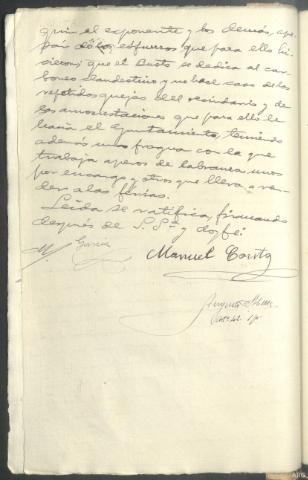 quin el exponente y los demás, ape-
sar de los esfuerzos que para ello hi-
cieron; que el Busto se dedica al car-
boneo clandestino y no hace caso de las
repetidas quejas del vecindario y de
las amonestaciones que para ello le
hacía el Ayuntamiento, teniendo
además una fragua con la que
trabaja aperos de labranza unos
por encargo y otros que lleva a ven-
der a las ferias.
Leída se ratifica, firmando
después de S. Sª y doy fé.
M. García
Manuel
Augusto